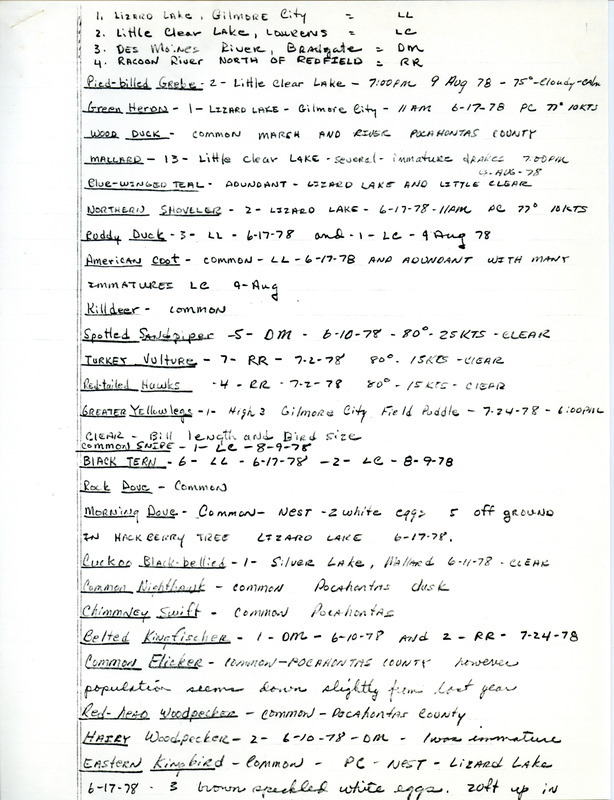 1. Lizard Lake, Gilmore City = LL
2. Little Clear Lake, Laurens = LC
3. Des Moines River, Bradgate = DM
4. Racoon River North of Redfield = RR
Pied-billed Grebe - 2 - Little Clear Lake - 7:00PM 9 Aug 78 - 75°-Cloudy-calm
Green Heron - 1 - Lizard Lake - Gilmore City - 11 AM 6-17-78 PC 77° 10KTS
Wood Duck - common marsh and river Pocahontas County
Mallard - 13 - Little Clear Lake - several - immature drakes 7:00PM
9-Aug-78
Blue-winged Teal - Abundant - Lizard Lake and Little Clear
Northern Shoveler - 2 - Lizard Lake - 6-17-78 - 11AM PC 77° 10KTS
Ruddy Duck - 3 - LL - 6-17-78 and - 1 - LC - 9 Aug 78
American Coot - common - LL - 6-17-78 and abundant with many
immatures LC 9-Aug
Killdeer - common
Spotted Sandpiper - 5 - DM - 6-10-78 - 80° - 25KTS - Clear
Turkey Vulture - 7 - RR - 7-2-78 80° 15KTS - Clear
Red-tailed Hawks - 4 - RR - 7-2-78 80° - 15KTS - Clear
Greater Yellowlegs - 1 - High 3 Gilmore City Field Puddle - 7-24-78 - 6:00PM
Clear - Bill length and Bird size
Common Snipe - 1 - LC - 8-9-78
Black Tern - 6 - LL - 6-17-78 - 2 - LC - 8-9-78
Rock Dove - Common
Morning Dove - Common - Nest - 2 white eggs 5 off ground
in Hackberry tree Lizard Lake 6-17-78.
Cuckoo Black-bellied - 1 - Silver Lake, Mallard 6-11-78 - Clear
Common Nighthawk - common Pocahontas dusk
Chimmney Swift - Common Pocahontas
Belted Kingfischer - 1 - DM - 6-10-78 and 2 - RR - 7-24-78
Common Flicker - common - Pocahontas County however
population seems down slightly from last year
Red-head Woodpecker - common - Pocahontas County
Hairy Woodpecker - 2 - 6-10-78 - DM - 1 was immature
Eastern Kingbird - Common - PC - Nest - Lizard Lake
6-17-78 - 3 brown speckled white eggs. 20ft up in